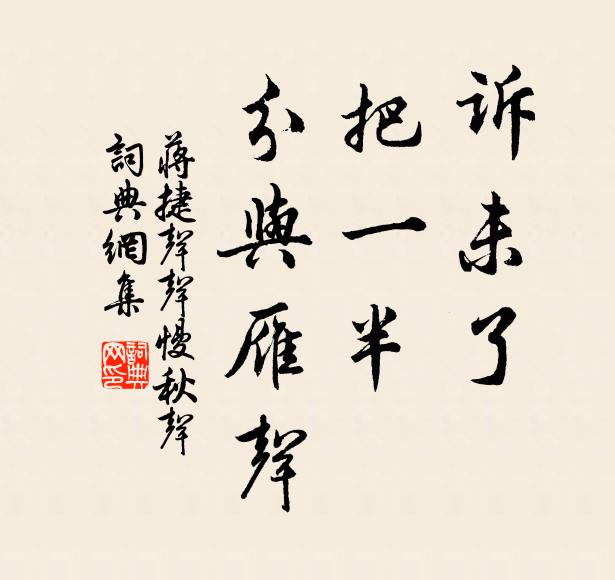 訴未了
把一半
分與雁聲
蔣捷聲聲慢秋聲
詞典網集
詞典
网印